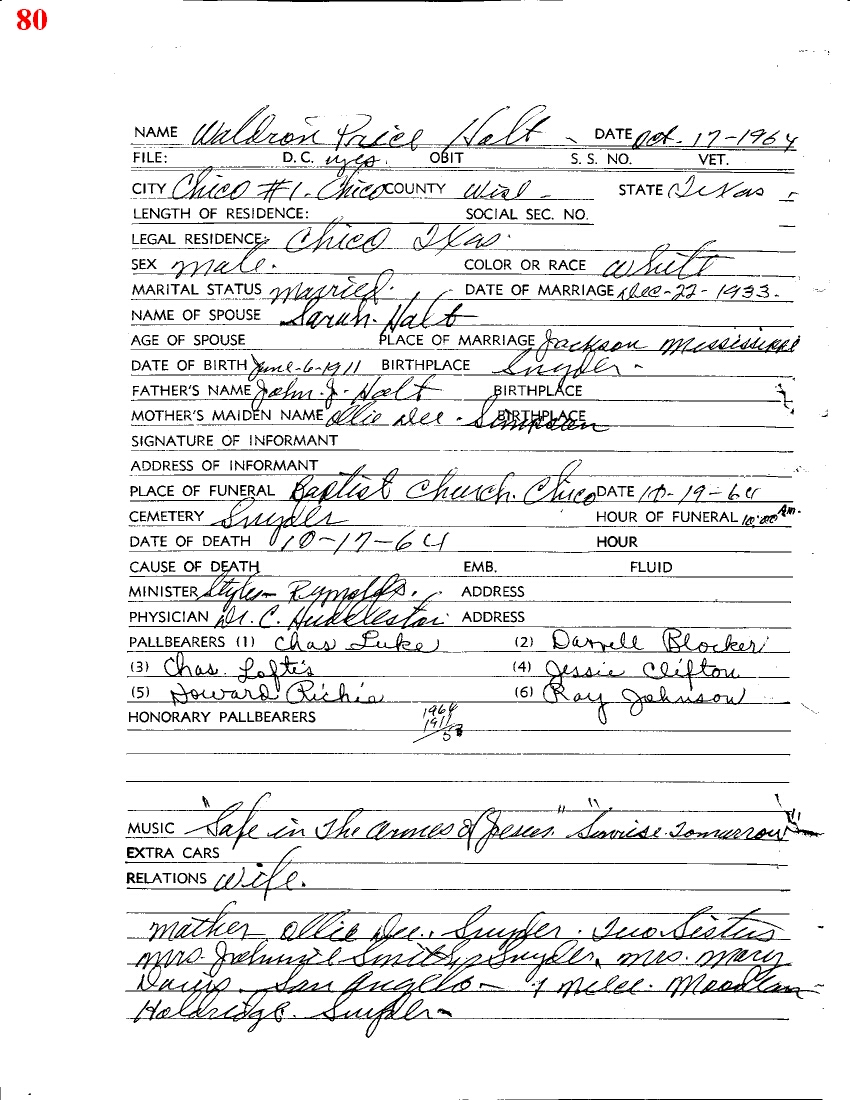 80
NAME Waldron Price Holt - DATE Oct. 17-1964
FILE: D.C. yes. OBIT S. S. NO. VET.
CITY Chico #1. Chico COUNTY Wise - STATE Texas -
LENGTH OF RESIDENCE: SOCIAL SEC. NO.
LEGAL RESIDENCE: Chico Txas.
SEX male. COLOR OR RACE white
MARITAL STATUS married. DATE OF MARRIAGE Dec-22-1933.
NAME OF SPOUSE Sarah. Holt
AGE OF SPOUSE PLACE OF MARRIAGE Jackson Mississippi
DATE OF BIRTH June-6-1911 BIRTHPLACE Snyder -
FATHER'S NAME John. J. Holt BIRTHPLACE
MOTHER'S MAIDEN NAME Ollie Dee - BIRTHPLACE
SIGNATURE OF INFORMANT
ADDRESS OF INFORMANT
PLACE OF FUNERAL Baptist Church. Chico DATE 10-19-64
CEMETERY Snyder HOUR OF FUNERAL 10:00 Am.
DATE OF DEATH 10-17-64 HOUR
CAUSE OF DEATH EMB. FLUID
MINISTER Rynolds. ADDRESS
PHYSICIAN Dr. C. Huddleston ADDRESS
PALLBEARERS (1) Chas Luke (2) Darrell Blocker
(3) Chas. Loftis (4) Jessie Clifton
(5) Howard Richie (6) Ray Johnson
HONORARY PALLBEARERS 1964
1911
53
MUSIC "Safe in The Armes of Jesus" "Sunrise Tomorrow"
EXTRA CARS
RELATIONS Wife.
mother Ollie Dee. Snyder. Two Sisters
mrs. Johnnie Smith, Snyder, mrs. mary
Davis. San Angelo - 1 niece.
Holdridge. Snyder -